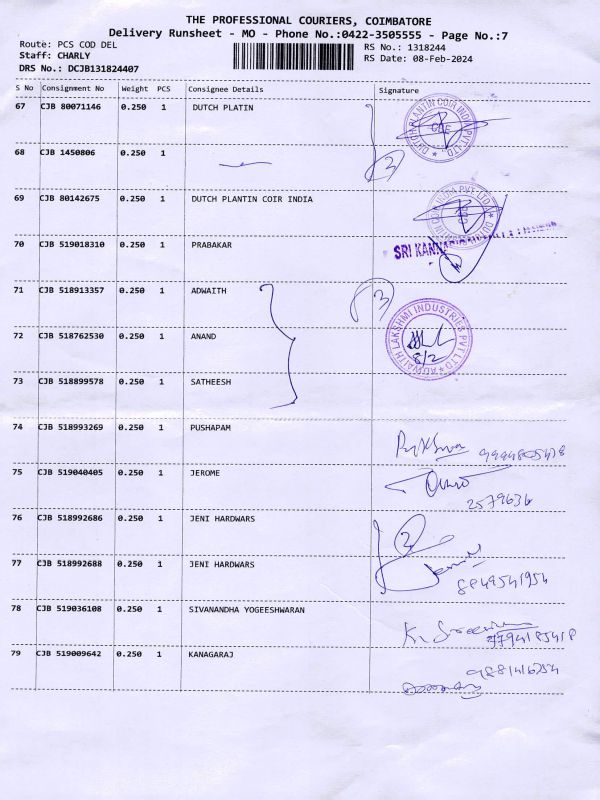 THE PROFESSIONAL COURIERS, COIMBATORE
Delivery Runsheet - MO - Phone No.:0422-3505555 - Page No.:7
Route: PCS COD DEL
Staff: CHARLY
DRS No.: DCJB131824407
RS No.: 1318244
RS Date: 08-Feb-2024
S No Consignment No Weight PCS Consignee Details Signature
67 CJB 80071146 0.250 1 DUTCH PLATIN
68 CJB 1450806 0.250 1
3
69 CJB 80142675 0.250 1 DUTCH PLANTIN COIR INDIA
70 CJB 519018310 0.250 1 PRABAKAR
SRI
71 CJB 518913357 0.250 1 ADWAITH
3
72 CJB 518762530 0.250 1 ANAND
ADWAITH LAKSHMI INDUSTRIES PVT LTD
8/2
73 CJB 518899578 0.250 1 SATHEESH
74 CJB 518993269 0.250 1 PUSHAPAM
75 CJB 519040405 0.250 1 JEROME
2579636
76 CJB 518992686 0.250 1 JENI HARDWARS
2
77 CJB 518992688 0.250 1 JENI HARDWARS
78 CJB 519036108 0.250 1 SIVANANDHA YOGEESHWARAN
79 CJB 519009642 0.250 1 KANAGARAJ